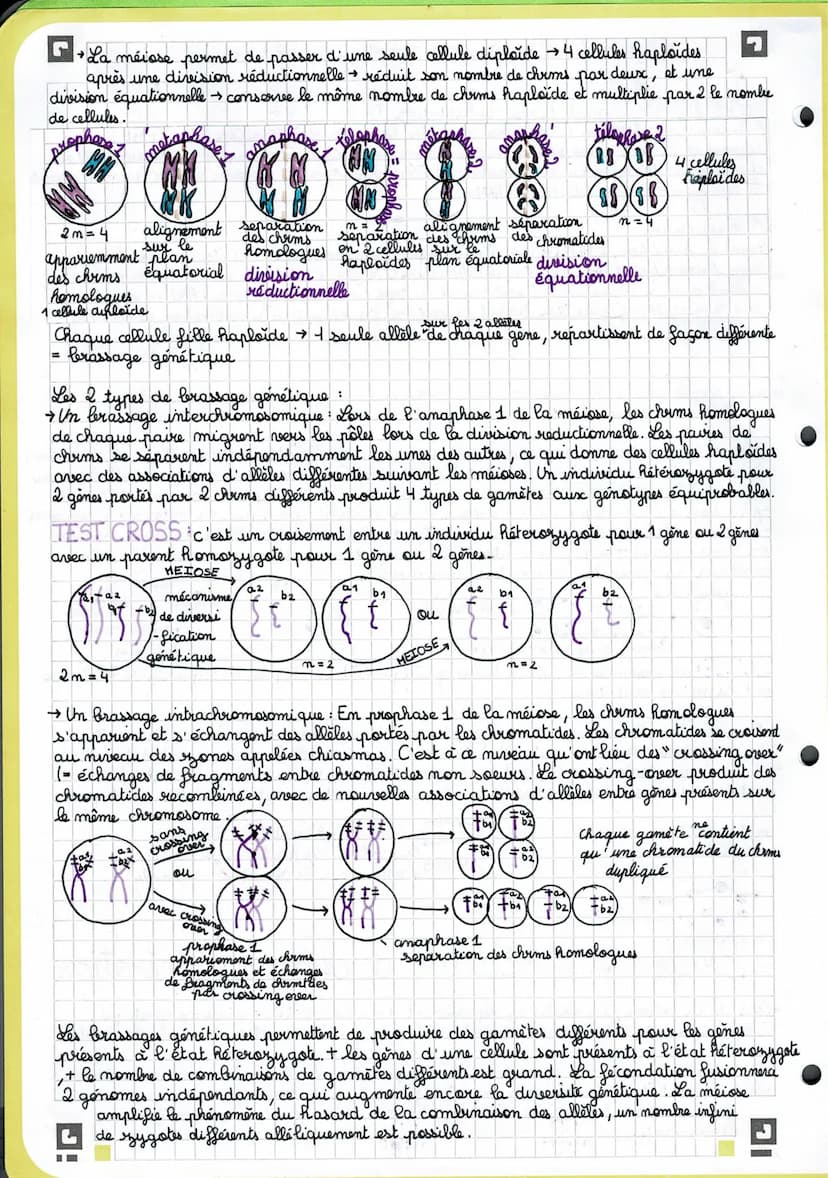 → La méiose permet de passer d'une seule cellule diploïde → 4 cellules haploïdes
après une division réductionnelle → réduit son nombre de chrms par deux, et une
division équationnelle → conserve le même nombre de chrms haploïde et multiplie par 2 le nombre
de cellules.
prophase 1
métaphase 1
anaphase 1
télophase = prophase
métaphase 2
anaphase 2
télophase 2
4 cellules
haploïdes
2n = 4
appariemment
des chrms
homologues
1 cellule diploïde
alignement
sur le
plan
équatorial
séparation
des chrms
homologues
division
réductionnelle
n = 2
séparation
en 2 cellules
haploïdes
alignement
des chrms
sur le
plan équatoriale
séparation
des chromatides
division
équationnelle
n = 4
Chaque cellule fille haploïde → 1 seule allèle sur les 2 allèles de chaque gène, répartissent de façon différente
= brassage génétique
Les 2 types de brassage génétique :
→ Un brassage interchromosomique : Lors de l'anaphase 1 de la méiose, les chrms homologues
de chaque paire migrent vers les pôles lors de la division reductionnelle. Les paires de
chrms se séparent indépendamment les unes des autres, ce qui donne des cellules haploïdes
avec des associations d'allèles différentes suivant les méioses. Un individu hétérozygote pour
2 gènes portés par 2 chrms différents produit 4 types de gamètes aux génotypes équiprobables.
TEST CROSS : c'est un croisement entre un individu hétérozygote pour 1 gène ou 2 gènes
avec un parent homozygote pour 1 gène ou 2 gènes.
MEIOSE
a1 a2
b1 b2
mécanisme
de diversi
-fication
génétique
a2 b2
a1 b1
ou
a2 b1
a1 b2
2n = 4
n = 2
MEIOSE
n = 2
→ Un brassage intrachromosomique : En prophase 1 de la méiose, les chrms homologues
s'apparient et s'échangent des allèles portés par les chromatides. Les chromatides se croisent
au niveau des zones appelées chiasmas. C'est à ce niveau qu'ont lieu des "crossing over"
(= échanges de fragments entre chromatides non soeurs. Le crossing-over produit des
chromatides recombinées, avec de nouvelles associations d'allèles entre gènes présents sur
le même chromosome.
a1
a2
b2
sans
crossing
over
ou
avec crossing
over
a1
b1
a2
b2
a1
b1
a2
b2
Chaque gamète ne contient
qu'une chromatide du chrms
dupliqué
a1
b1
a2
b1
a1
b2
a2
b2
prophase 1
appariement des chrms
homologues et échanges
de fragments de chrmtdes
par crossing over
anaphase 1
separation des chrms homologues
Les brassages génétiques permettent de produire des gamètes différents pour les gènes
présents à l'état hétérozygote. + les gènes d'une cellule sont présents à l'état hétérozygote
, + le nombre de combinaisons de gamètes différents est grand. La fécondation fusionnera
2 génomes indépendants, ce qui augmente encore la diversité génétique. La méiose
amplifie le phénomène du hasard de la combinaison des allèles, un nombre infini
de zygotes différents alléliquement est possible.